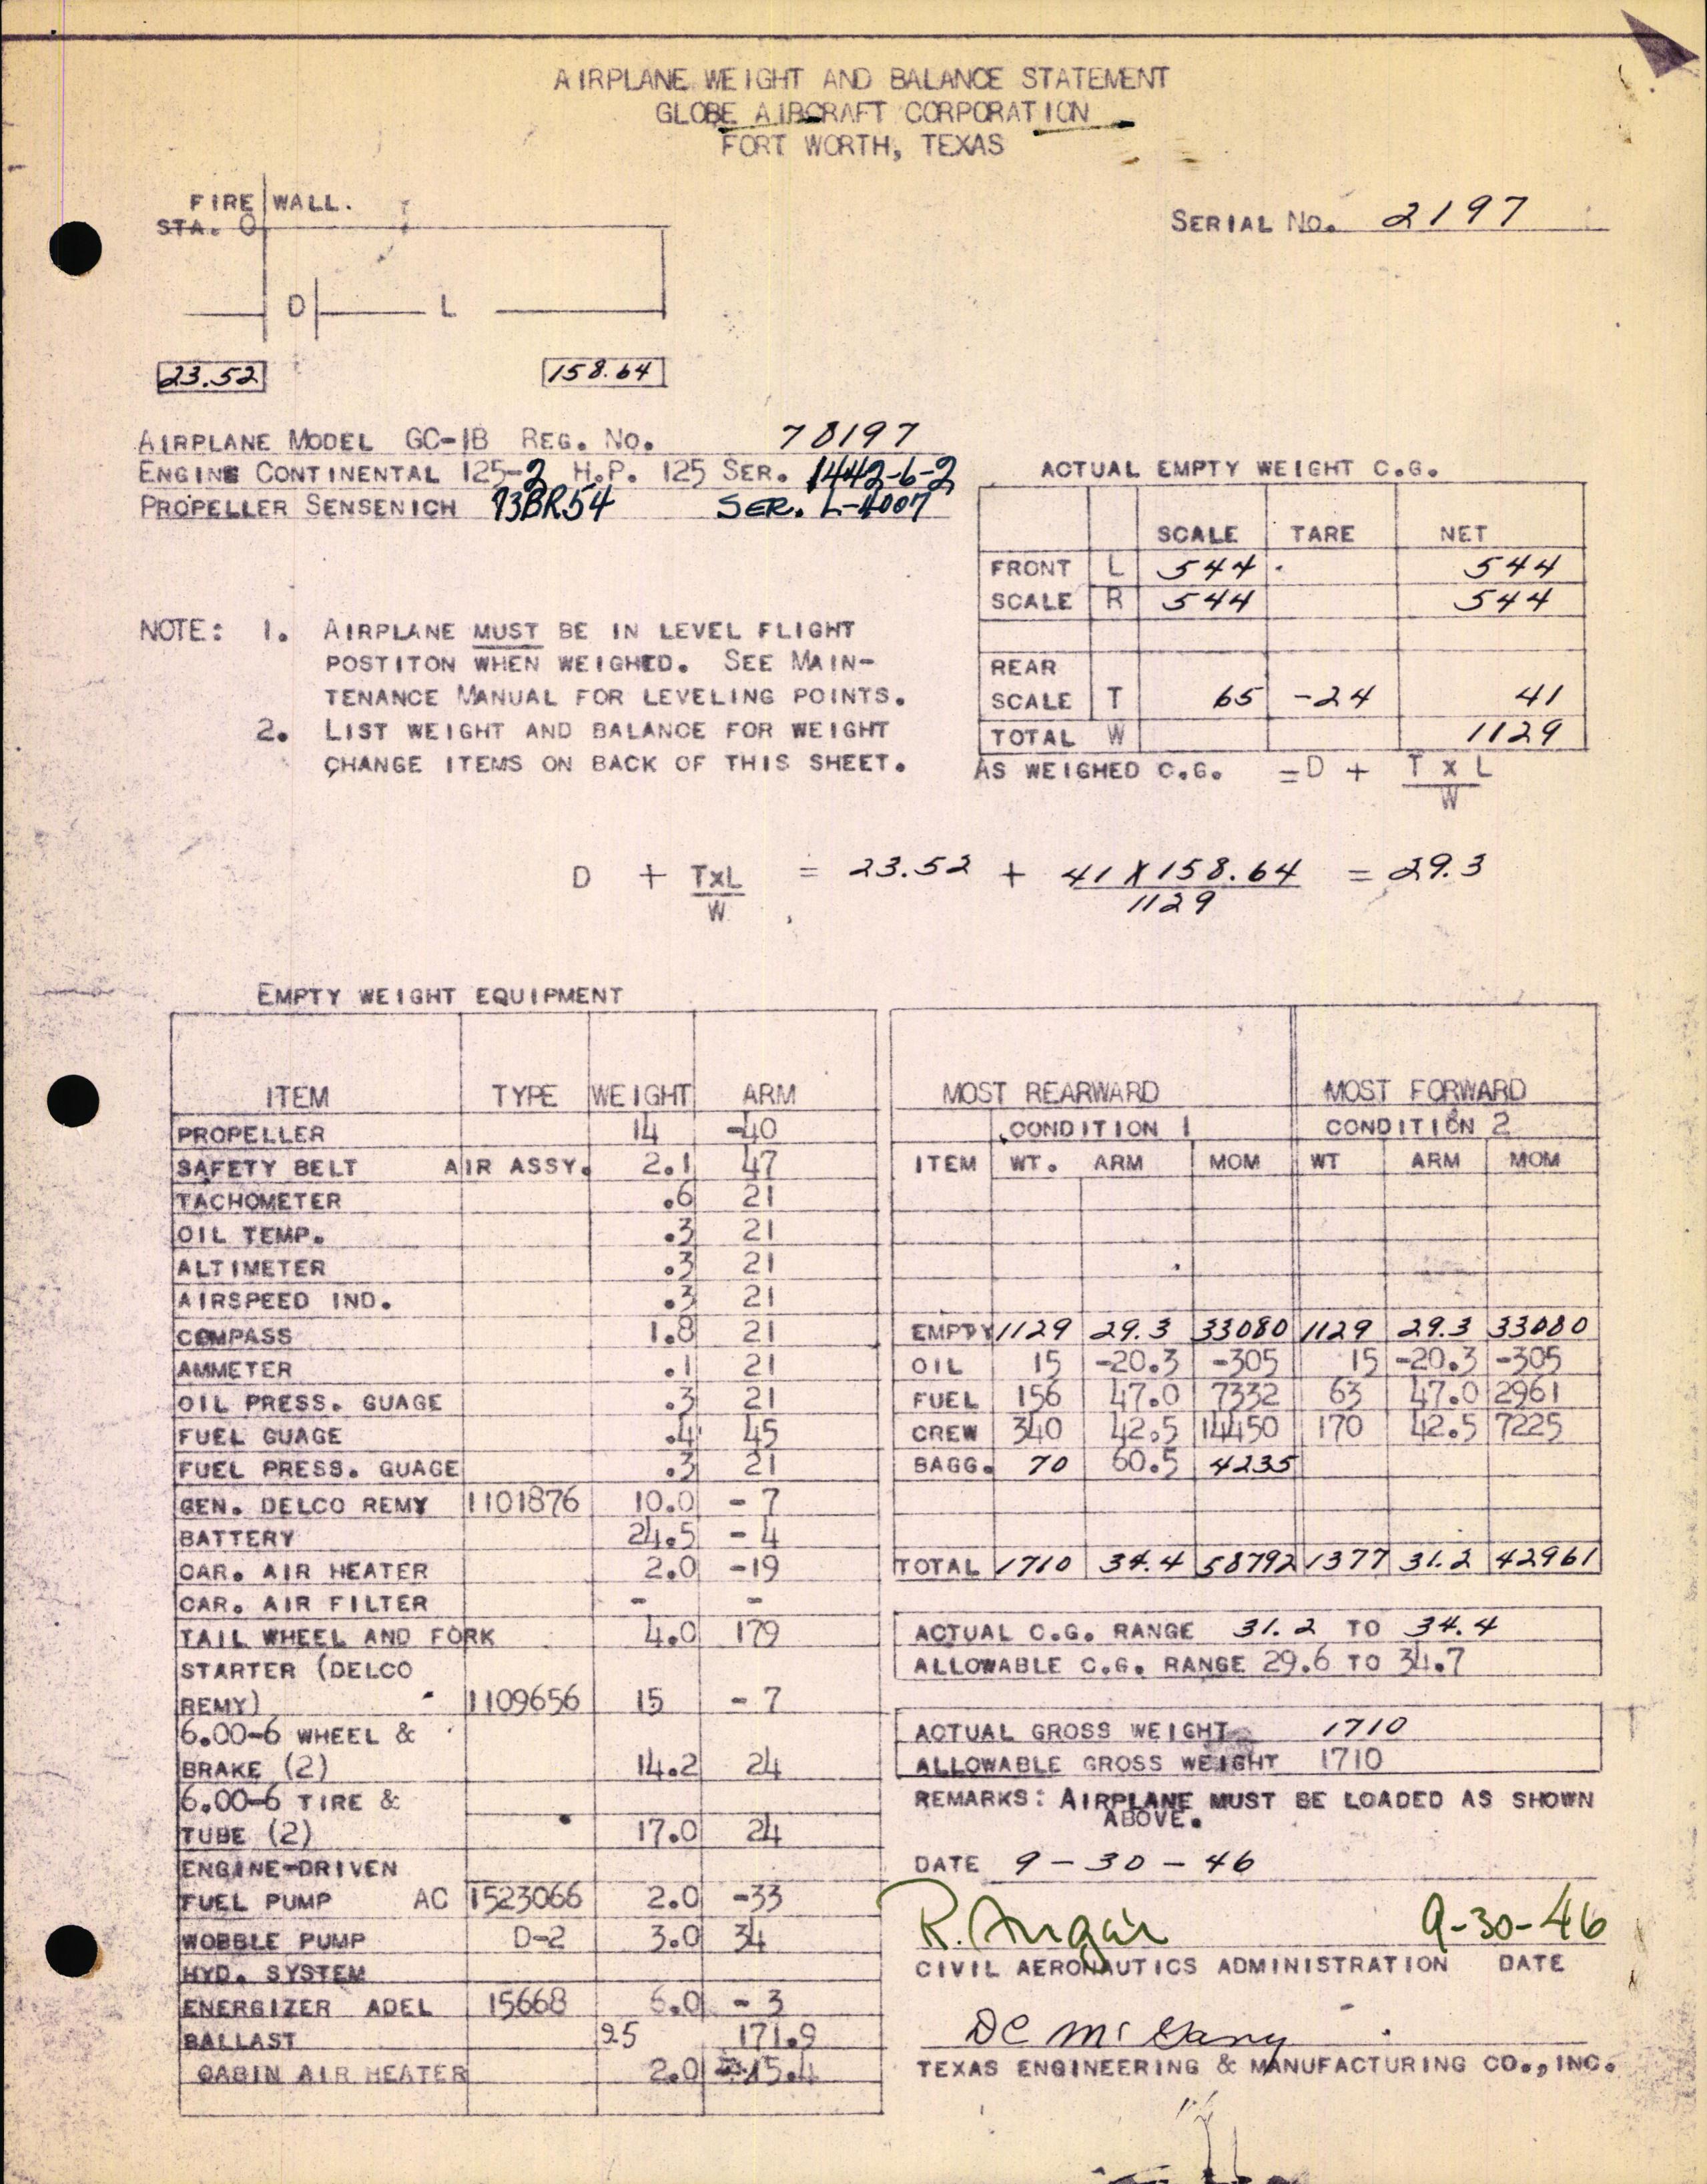 AIRPLANE WEIGHT AND BALANCE STATEMENT
GLOBE AIRCRAFT CORPORATION
FORT WORTH, TEXAS
FIRE WALL.
STA. 0
SERIAL NO. 2197
D L
23.52 158.64
AIRPLANE MODEL GC-1B REG. NO. 78197
ENGINE CONTINENTAL 125-2 H.P. 125 SER. 1442-6-2
PROPELLER SENSENICH 73BR54 SER. L-4007
ACTUAL EMPTY WEIGHT C.G.
SCALE TARE NET
FRONT L 544 544
SCALE R 544 544
REAR
SCALE T 65 -24 41
TOTAL W 1129
AS WEIGHED C.G. = D + T x L
W
NOTE: 1. AIRPLANE MUST BE IN LEVEL FLIGHT
POSTITON WHEN WEIGHED. SEE MAIN-
TENANCE MANUAL FOR LEVELING POINTS.
2. LIST WEIGHT AND BALANCE FOR WEIGHT
CHANGE ITEMS ON BACK OF THIS SHEET.
D + TxL = 23.52 + 41 X 158.64 = 29.3
W 1129
EMPTY WEIGHT EQUIPMENT
ITEM TYPE WEIGHT ARM
PROPELLER 14 -40
SAFETY BELT AIR ASSY. 2.1 47
TACHOMETER .6 21
OIL TEMP. .3 21
ALTIMETER .3 21
AIRSPEED IND. .3 21
COMPASS 1.8 21
AMMETER .1 21
OIL PRESS. GUAGE .3 21
FUEL GUAGE .4 45
FUEL PRESS. GUAGE .3 21
GEN. DELCO REMY 1101876 10.0 - 7
BATTERY 24.5 - 4
CAR. AIR HEATER 2.0 -19
CAR. AIR FILTER - -
TAIL WHEEL AND FORK 4.0 179
STARTER (DELCO
REMY) 1109656 15 - 7
6.00-6 WHEEL &
BRAKE (2) 14.2 24
6.00-6 TIRE &
TUBE (2) 17.0 24
ENGINE-DRIVEN
FUEL PUMP AC 1523066 2.0 -33
WOBBLE PUMP D-2 3.0 34
HYD. SYSTEM
ENERGIZER ADEL 15668 6.0 - 3
BALLAST 25 171.9
CABIN AIR HEATER 2.0 -15.4
MOST REARWARD MOST FORWARD
CONDITION 1 CONDITION 2
ITEM WT. ARM MOM WT ARM MOM
EMPTY 1129 29.3 33080 1129 29.3 33080
OIL 15 -20.3 -305 15 -20.3 -305
FUEL 156 47.0 7332 63 47.0 2961
CREW 340 42.5 14450 170 42.5 7225
BAGG. 70 60.5 4235
TOTAL 1710 34.4 58792 1377 31.2 42961
ACTUAL C.G. RANGE 31.2 TO 34.4
ALLOWABLE C.G. RANGE 29.6 TO 34.7
ACTUAL GROSS WEIGHT 1710
ALLOWABLE GROSS WEIGHT 1710
REMARKS: AIRPLANE MUST BE LOADED AS SHOWN
ABOVE.
DATE 9-30-46
R. 9-30-46
CIVIL AERONAUTICS ADMINISTRATION DATE
TEXAS ENGINEERING & MANUFACTURING CO., INC.